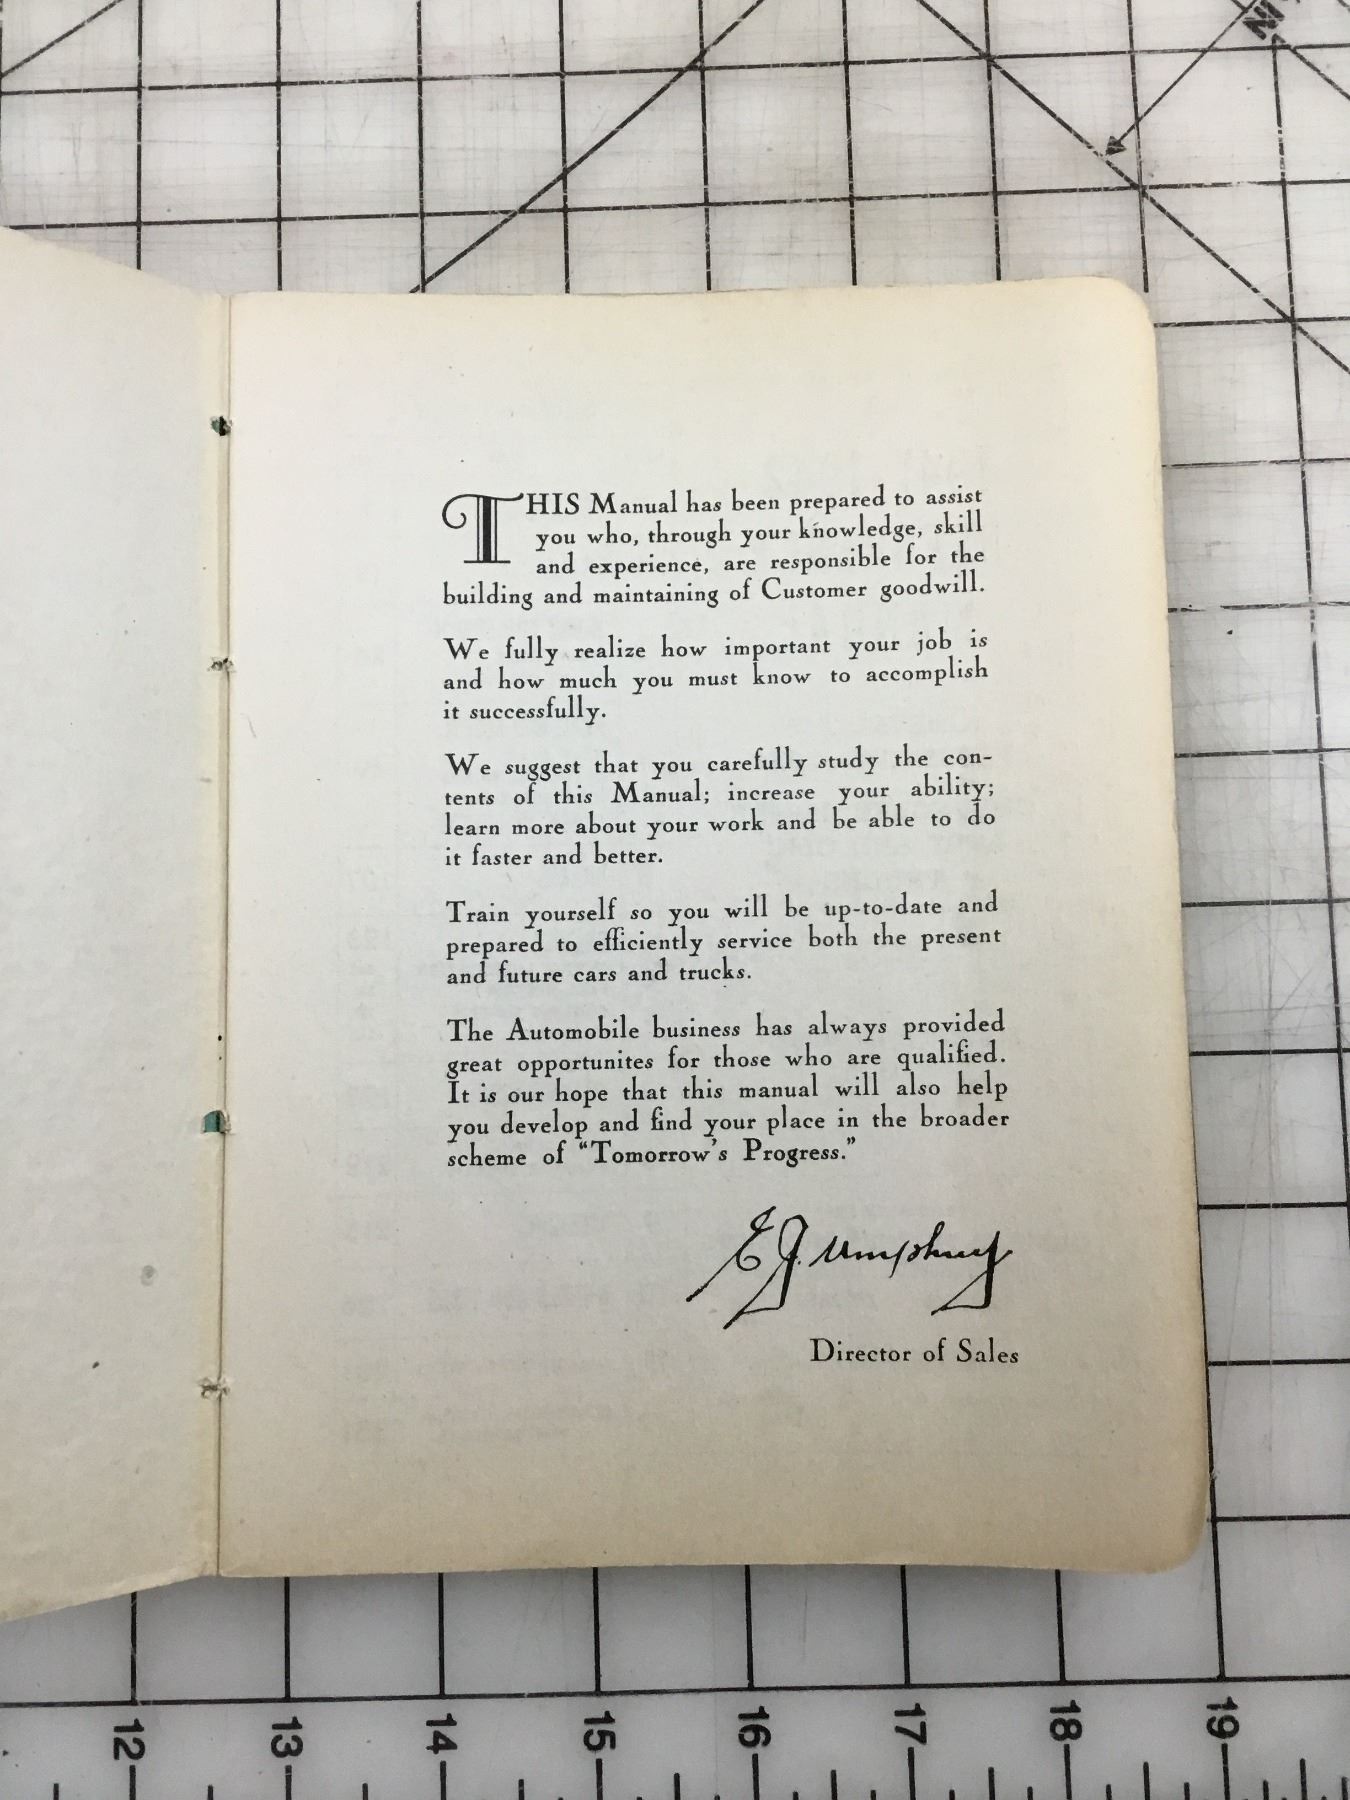 IN
THIS Manual has been prepared to assist
you who, through your knowledge, skill
and experience, are responsible for the
building and maintaining of Customer goodwill.
We fully realize how important your job is
and how much you must know to accomplish
it successfully.
We suggest that you carefully study the con-
tents of this Manual; increase your ability;
learn more about your work and be able to do
it faster and better.
Train yourself so you will be up-to-date and
prepared to efficiently service both the present
and future cars and trucks.
The Automobile business has always provided
great opportunites for those who are qualified.
It is our hope that this manual will also help
you develop and find your place in the broader
scheme of "Tomorrow's Progress."
E J. Umphrey
Director of Sales
12 13 14 15 16 17 18 19